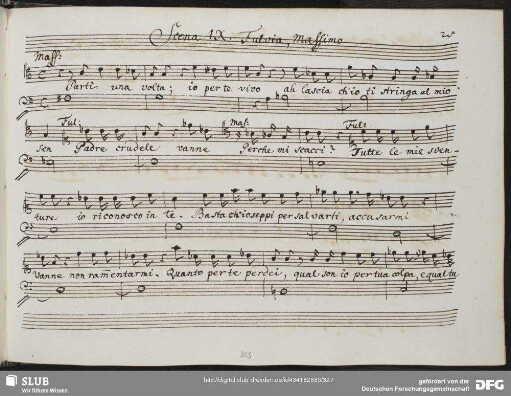 Scena IX. Fulvia, Massimo
Mass:
Parti una volta; io per te vivo ah lascia ch'io ti stringa al mio
Ful: Mas: Ful:
sen Padre crudele vanne Perche mi scacci? Tutte le mie sven-
ture io riconosco in te. Basta ch'io seppi per salvarti, accusarmi
Vanne non ramentarmi. Quanto per te perdei, qual son io per tua colpa, e qual fu
323
SLUB
Wir führen Wissen.
gefördert von der
Deutschen Forschungsgemeinschaft
DFG